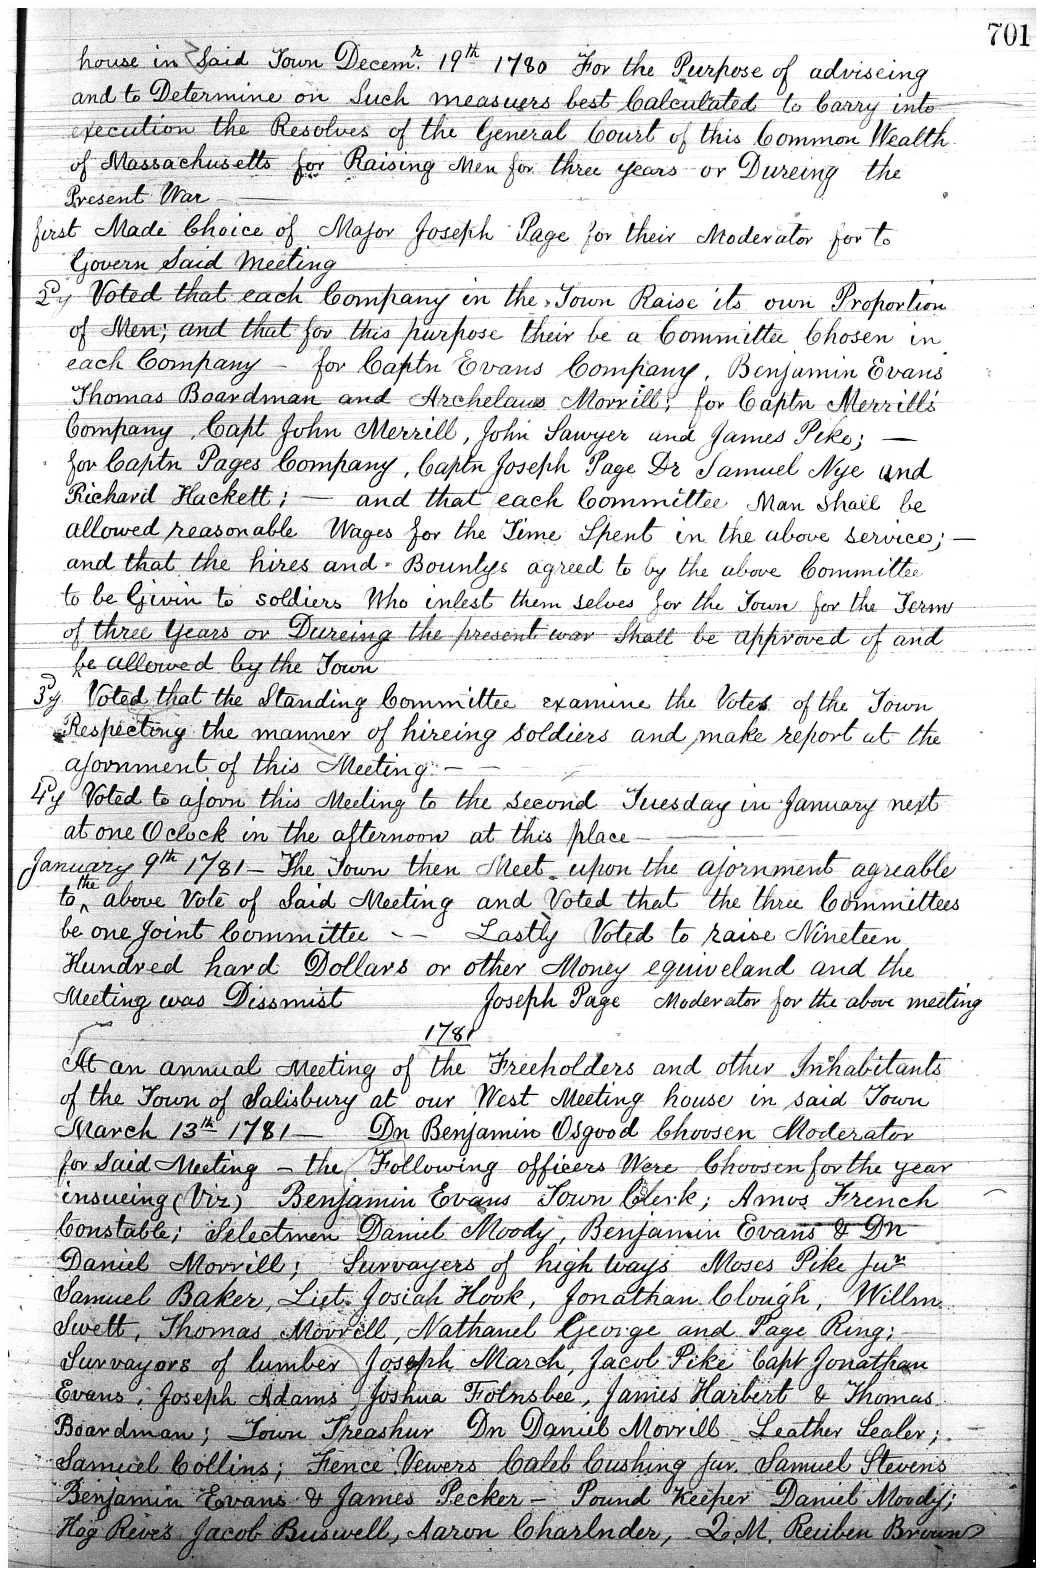 701
house in Said Town Decemr. 19th 1780 For the Purpose of adviseing
and to Determine on Such measuers best Calculated to Carry into
execution the Resolves of the General Court of this Common Wealth
of Massachusetts for Raising Men for three years or Dureing the
Present War
first Made Choice of Major Joseph Page for their Moderator for to
Govern Said Meeting
2ly Voted that each Company in the Town Raise its own Proportion
of Men; and that for this purpose their be a Committee Chosen in
each Company – for Captn Evans Company, Benjamin Evans
Thomas Boardman and Archelaus Morrill; for Captn Merrill's
Company, Capt John Merrill, John Sawyer and James Pike; —
for Captn Pages Company, Captn Joseph Page Dr Samuel Nye and
Richard Hackett; — and that each Committee Man Shall be
allowed reasonable Wages for the Time Spent in the above service; —
and that the hires and Bountys agreed to by the above Committee
to be Givin to soldiers Who inlest them selves for the Town for the Term
of three Years or Dureing the present war Shall be approved of and
be allowed by the Town
3ly Voted that the Standing Committee examine the Votes of the Town
Respecting the manner of hireing soldiers and make report at the
ajournment of this Meeting. —
4ly Voted to ajorn this Meeting to the second Tuesday in January next
at one Oclock in the afternoon at this place —
January 9th 1781 – The Town then Meet upon the ajornment agreable
to the above Vote of Said Meeting and Voted that the three Committees
be one Joint Committee – – Lastly Voted to raise Nineteen
Hundred hard Dollars or other Money equiveland and the
Meeting was Dissmist Joseph Page Moderator for the above meeting
1781
At an annual Meeting of the Freeholders and other Inhabitants
of the Town of Salisbury at our West Meeting house in said Town
March 13th 1781 — Dn Benjamin Osgood Choosen Moderator
for Said Meeting – the Following officers Were Choosen for the year
insueing (Viz) Benjamin Evans Town Clerk; Amos French
Constable; Selectmen Daniel Moody, Benjamin Evans & Dn
Daniel Morrill; Survayers of high ways Moses Pike Jur
Samuel Baker, Liet. Josiah Hook, Jonathan Clough, Willm
Swett, Thomas Morrill, Nathanel George and Page Ring;
Survayors of lumber Joseph March, Jacob Pike Capt Jonathan
Evans, Joseph Adams, Joshua Folnsbee, James Harbert & Thomas
Boardman; Town Treashur Dn Daniel Morrill Leather Sealer;
Samuel Collins; Fence Vewers Caleb Cushing Jur. Samuel Stevens
Benjamin Evans & James Pecker – Pound Keeper Daniel Moody;
Hog Reves Jacob Buswell, Aaron Charlnder, Q.M. Reuben Brown